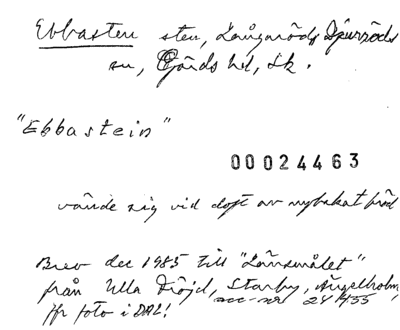 Ebbasten sten, Långaröds Spurröds
sn, Gärds hd, Sk.
"Ebbastein"
00024463
vände sig vid doft av nybakat bröd
Brev dec 1985 till "Länsmålet"
från Ulla Fröjd, Starby, Ängelholm,
acc-nr 24455
jfr foto i DAL!